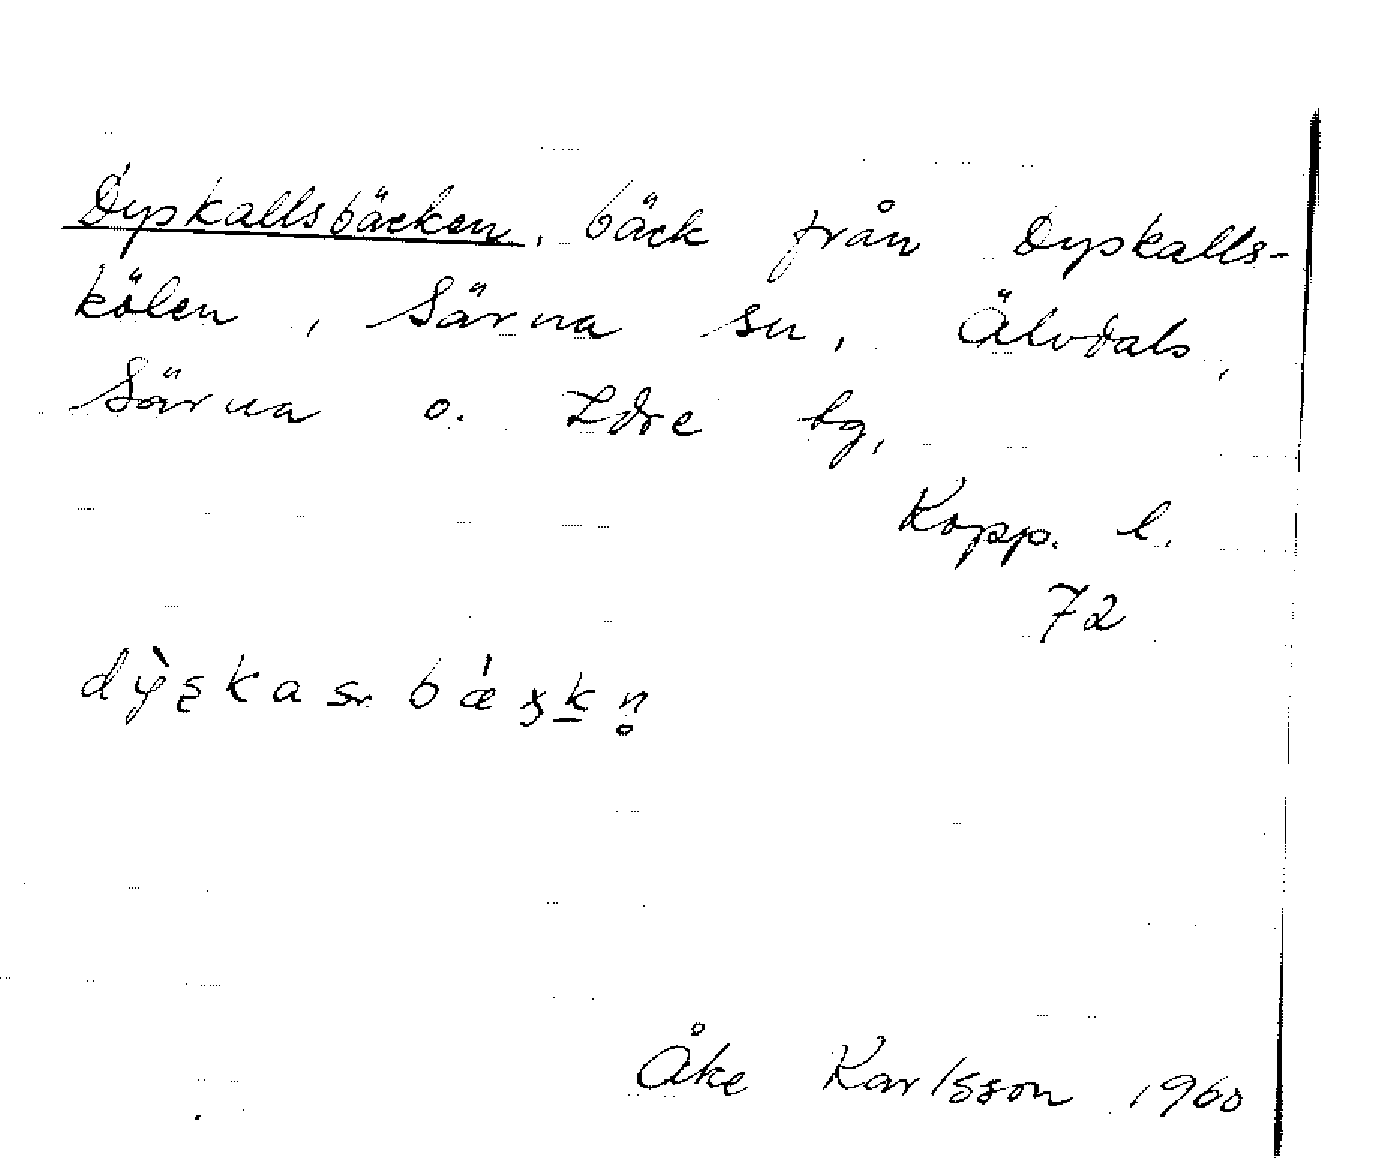 Dyskallsbäcken, bäck från Dyskalls-
kölen, Särna sn, Älvdals,
Särna o. Idre tg,
Kopp. l.
72
Åke Karlsson 1960